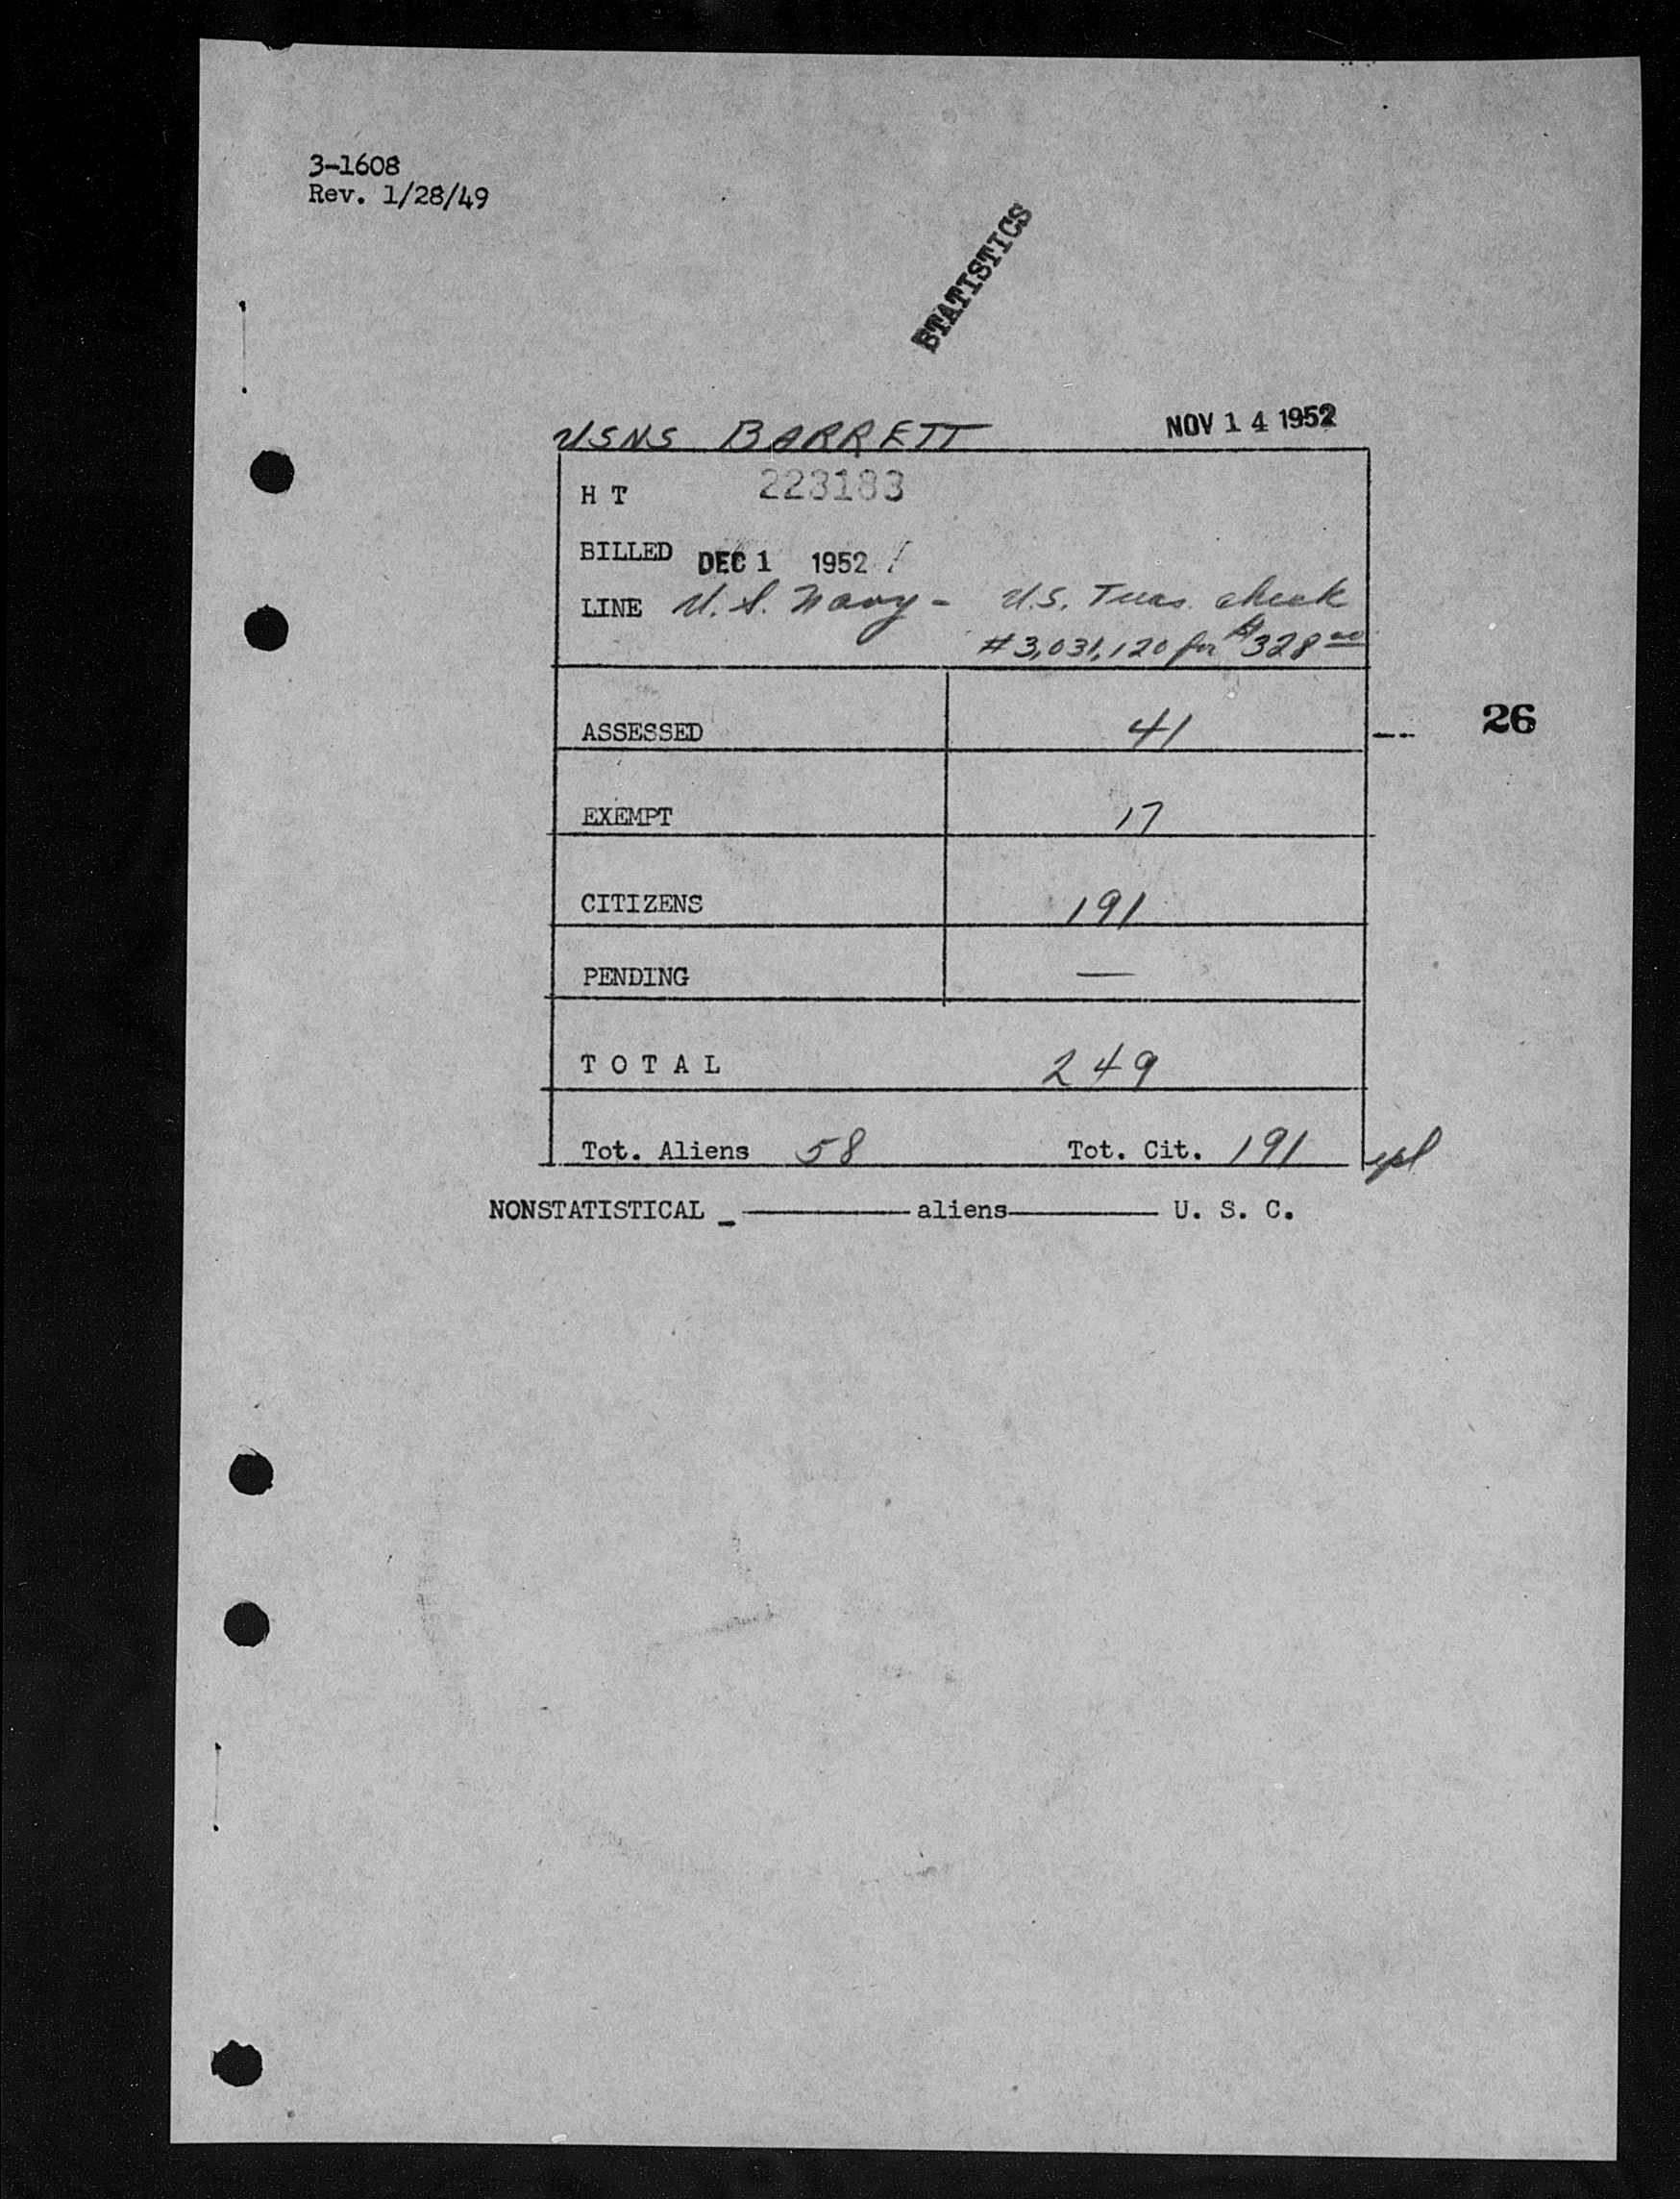 3-1608
Rev. 1/28/49
STATISTICS
USNS BARRETT NOV 14 1952
H T 223183
BILLED DEC 1 1952
LINE U. S. Navy - U.S. Treas. check
#3,031,120 for $328 00
ASSESSED 41
26
EXEMPT 17
CITIZENS 191
PENDING —
T O T A L 249
Tot. Aliens 58 Tot. Cit. 191
NONSTATISTICAL - ———— aliens ———— U. S. C.